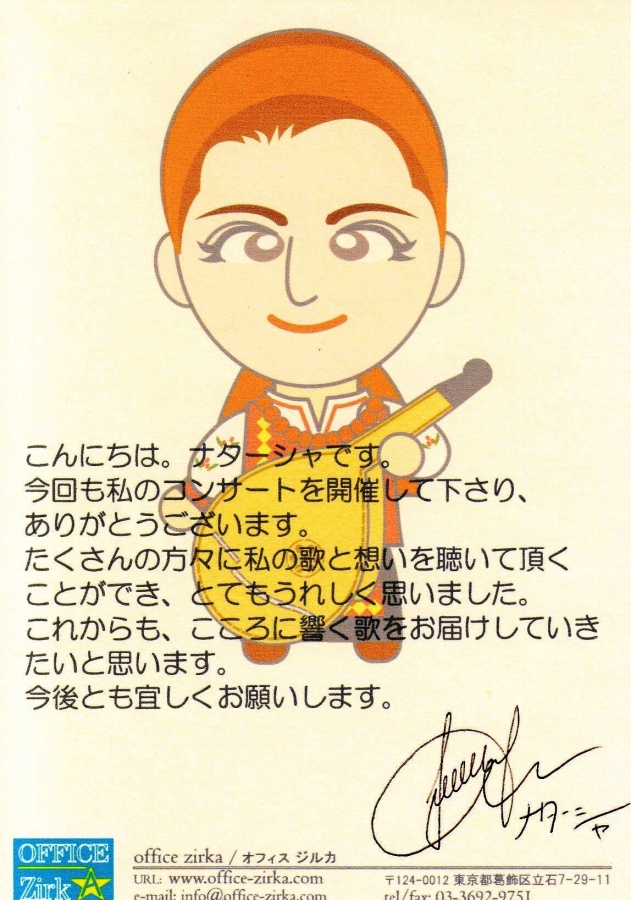 こんにちは。ナターシャです。
今回も私のコンサートを開催して下さり、
ありがとうございます。
たくさんの方々に私の歌と想いを聴いて頂く
ことができ、とてもうれしく思いました。
これからも、こころに響く歌をお届けしていき
たいと思います。
今後とも宜しくお願いします。
ナターシャ
OFFICE
Zirka
office zirka / オフィス ジルカ
URL: www.office-zirka.com 〒124-0012 東京都葛飾区立石7-29-11
e-mail: info@office-zirka.com tel/fax: 03-3692-9751